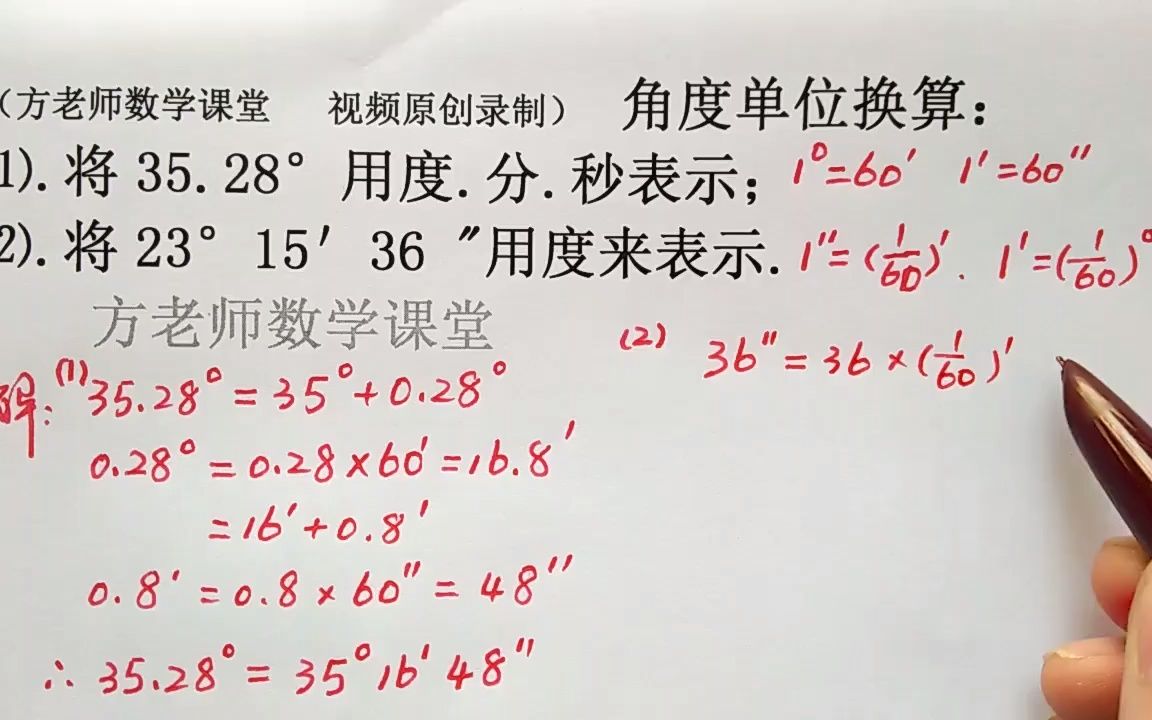 （方老师数学课堂 视频原创录制） 角度单位换算：
1).将 35.28° 用度.分.秒表示； 1°=60′ 1′=60″
2).将 23° 15′ 36 ″用度来表示. 1″=(1/60)′. 1′=(1/60)°
方老师数学课堂
解：(1) 35.28°=35°+0.28°
0.28°=0.28×60′=16.8′
=16′+0.8′
0.8′=0.8×60″=48″
∴ 35.28°=35°16′48″
(2) 36″=36×(1/60)′